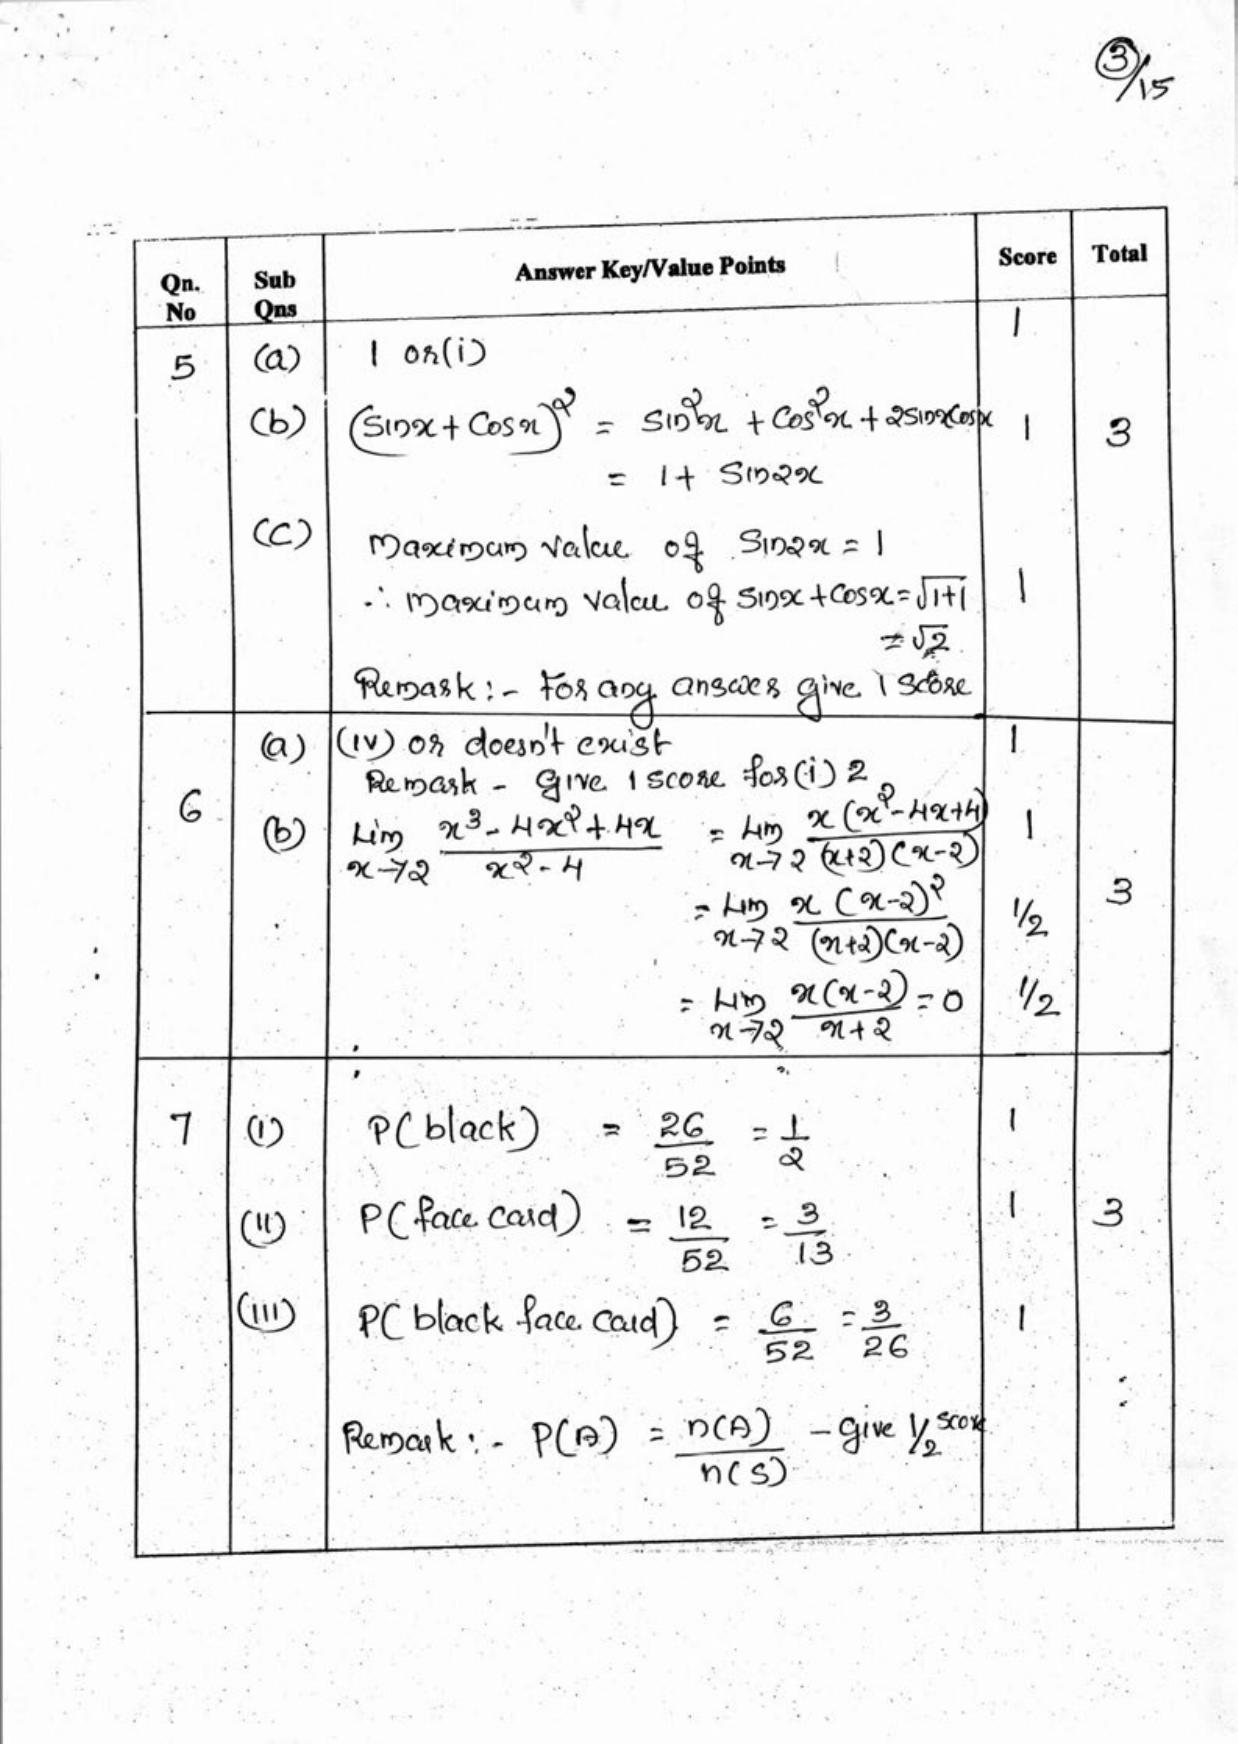 3/15
Qn. No | Sub Qns | Answer Key/Value Points | Score | Total
5 | (a) | 1 or (i) | 1
(b) | (sinx + cosx)² = sin²x + cos²x + 2sinxcosx | 1 | 3
= 1 + sin2x
(c) | maximum value of sin2x = 1
∴ maximum value of sinx + cosx = √1+1 | 1
= √2
Remark :- For any answer give 1 score
6 | (a) | (iv) or doesn't exist | 1
Remark - give 1 score for (i) 2
(b) | Lim x→2 (x³ - 4x² + 4x)/(x² - 4) = Lim x→2 x(x² - 4x + 4)/((x+2)(x-2)) | 1 | 3
= Lim x→2 x(x-2)²/((x+2)(x-2)) | 1/2
= Lim x→2 x(x-2)/(x+2) = 0 | 1/2
7 | (i) | P(black) = 26/52 = 1/2 | 1
(ii) | P(face card) = 12/52 = 3/13 | 1 | 3
(iii) | P(black face card) = 6/52 = 3/26 | 1
Remark :- P(A) = n(A)/n(S) - give 1/2 score